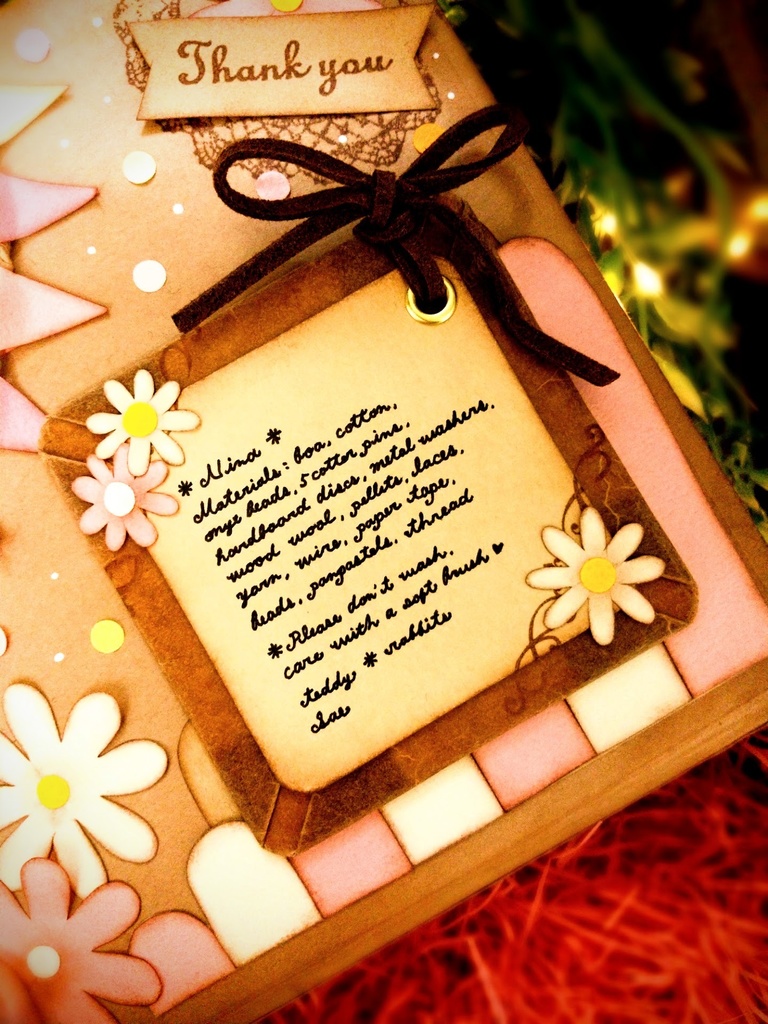 Thank you
* Nina *
Materials: boa, cotton,
onyx beads, 5 cotter pins,
hardboard discs, metal washers,
wood wool, pellits, laces,
yarn, wire, paper tape,
beads, panpastels, thread
*Please don't wash,
care with a soft brush ♥
teddy * rabbits
Sae